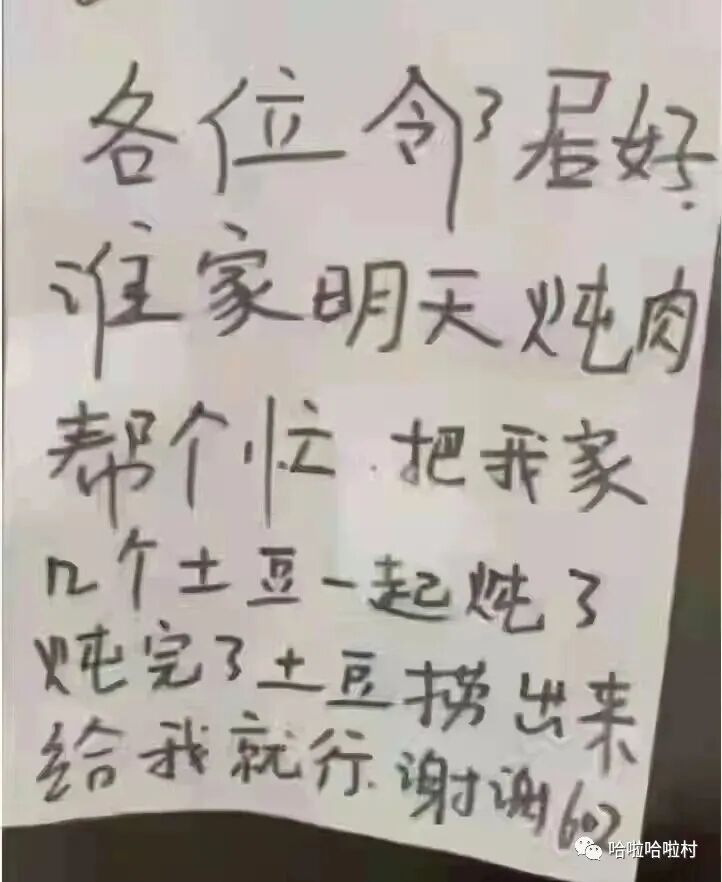 各位邻居好.
谁家明天炖肉
帮个忙.把我家
几个土豆一起炖了
炖完了土豆捞出来
给我就行.谢谢602
哈啦哈啦村